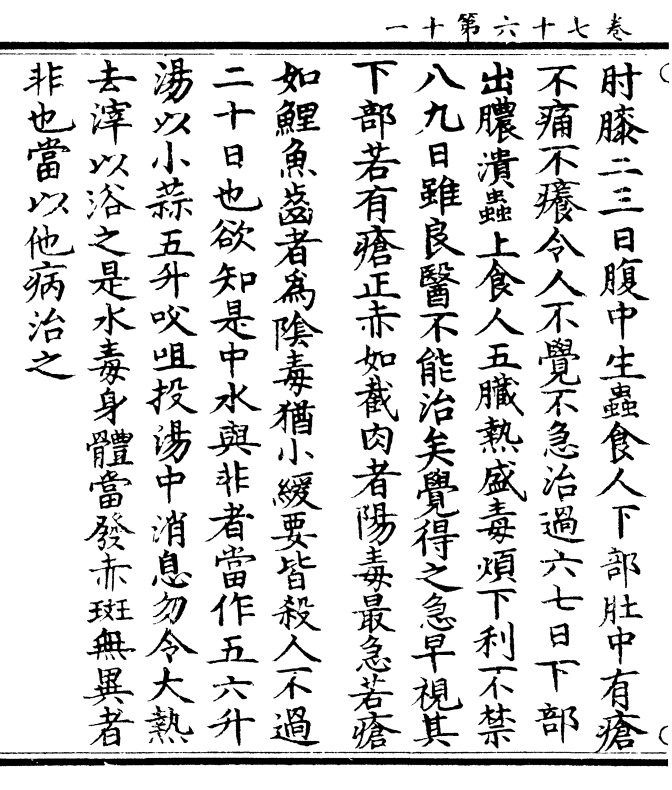 卷七十六第十一
肘膝二三日腹中生蟲食人下部肚中有瘡
不痛不癢令人不覺不急治過六七日下部
出膿潰蟲上食人五臟熱盛毒煩下利不禁
八九日雖良醫不能治矣覺得之急早視其
下部若有瘡正赤如截肉者陽毒最急若瘡
如鯉魚齒者為陰毒猶小緩要皆殺人不過
二十日也欲知是中水與非者當作五六升
湯以小蒜五升㕮咀投湯中消息勿令大熱
去滓以浴之是水毒身體當發赤斑無異者
非也當以他病治之